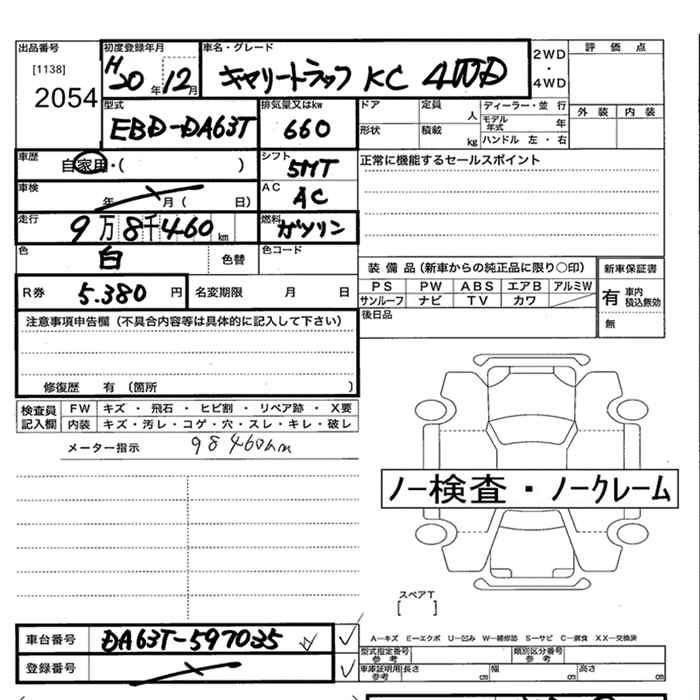 出品番号
[1138]
2054
初度登録年月
H20年12月
車名・グレード
キャリートラック KC 4WD
2WD
・
4WD
評価点
外装 内装
型式
EBD-DA63T
排気量又はkw
660
ドア
定員 人
ディーラー・並行
モデル年式 年
形状
積載 kg
ハンドル 左・右
車歴
自家用・( )
シフト
5MT
正常に機能するセールスポイント
車検
年 月( 日)
AC
AC
走行
9万8千460km
燃料
ガソリン
色
白
色替
色コード
装備品(新車からの純正品に限り○印)
新車保証書
PS PW ABS エアB アルミW
サンルーフ ナビ TV カワ
有 車内積込無効
無
R券
5.380円
名変期限 月 日
後日品
注意事項申告欄(不具合内容等は具体的に記入して下さい)
修復歴 有(箇所 )
検査員記入欄
FW キズ・飛石・ヒビ割・リペア跡・X要
内装 キズ・汚レ・コゲ・穴・スレ・キレ・破レ
メーター指示
98460km
ノー検査・ノークレーム
スペアT
[ ]
車台番号
DA63T-597035
登録番号
A-キズ E-エクボ U-凹み W-補修跡 S-サビ C-腐食 XX-交換済
型式指定番号
参考
類別区分番号
参考
車庫証明用
参考
長さ cm 幅 cm 高さ cm